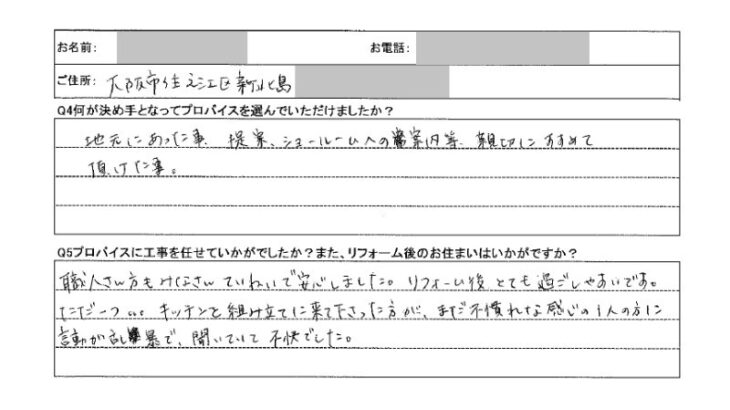 お名前:
お電話:
ご住所: 大阪市住之江区新北島
Q4何が決め手となってプロバイスを選んでいただけましたか?
地元にあった事、提案、ショールームへの案内等、親切にすすめて
頂けた事。
Q5プロバイスに工事を任せていかがでしたか?また、リフォーム後のお住まいはいかがですか?
職人さん方もみなさんていねいで安心しました。リフォーム後とても過ごしやすいです。
ただ一つ… キッチンを組み立てに来て下さった方が、まだ不慣れな感じの1人の方に
言動が乱暴で、聞いていて不快でした。